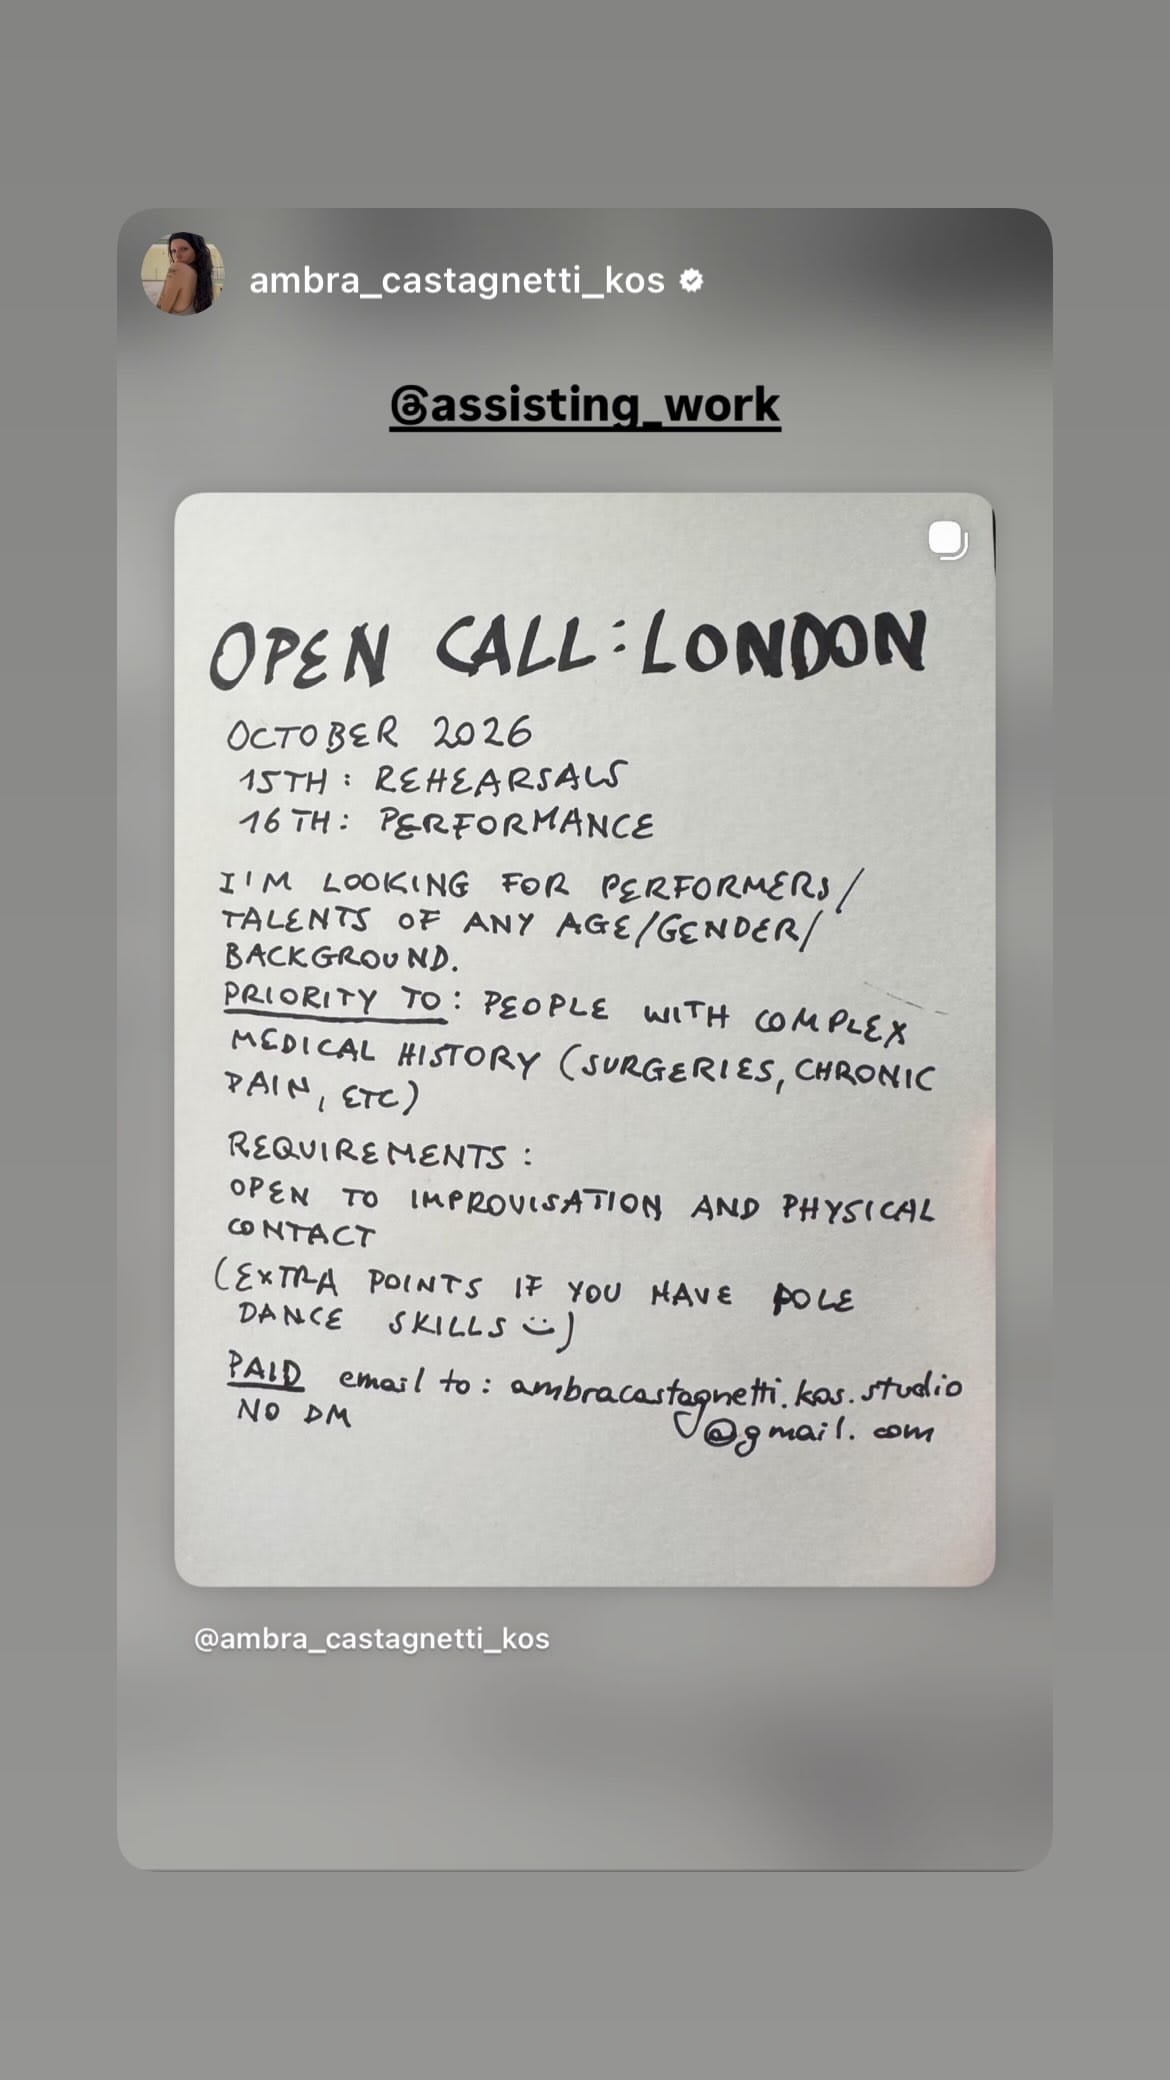 ambra_castagnetti_kos
@assisting_work
OPEN CALL: LONDON
OCTOBER 2026
15TH: REHEARSALS
16TH: PERFORMANCE
I'M LOOKING FOR PERFORMERS/
TALENTS OF ANY AGE/GENDER/
BACKGROUND.
PRIORITY TO: PEOPLE WITH COMPLEX
MEDICAL HISTORY (SURGERIES, CHRONIC
PAIN, ETC)
REQUIREMENTS:
OPEN TO IMPROVISATION AND PHYSICAL
CONTACT
(EXTRA POINTS IF YOU HAVE POLE
DANCE SKILLS :)
PAID email to: ambracastagnetti.kos.studio
NO DM @gmail.com
@ambra_castagnetti_kos